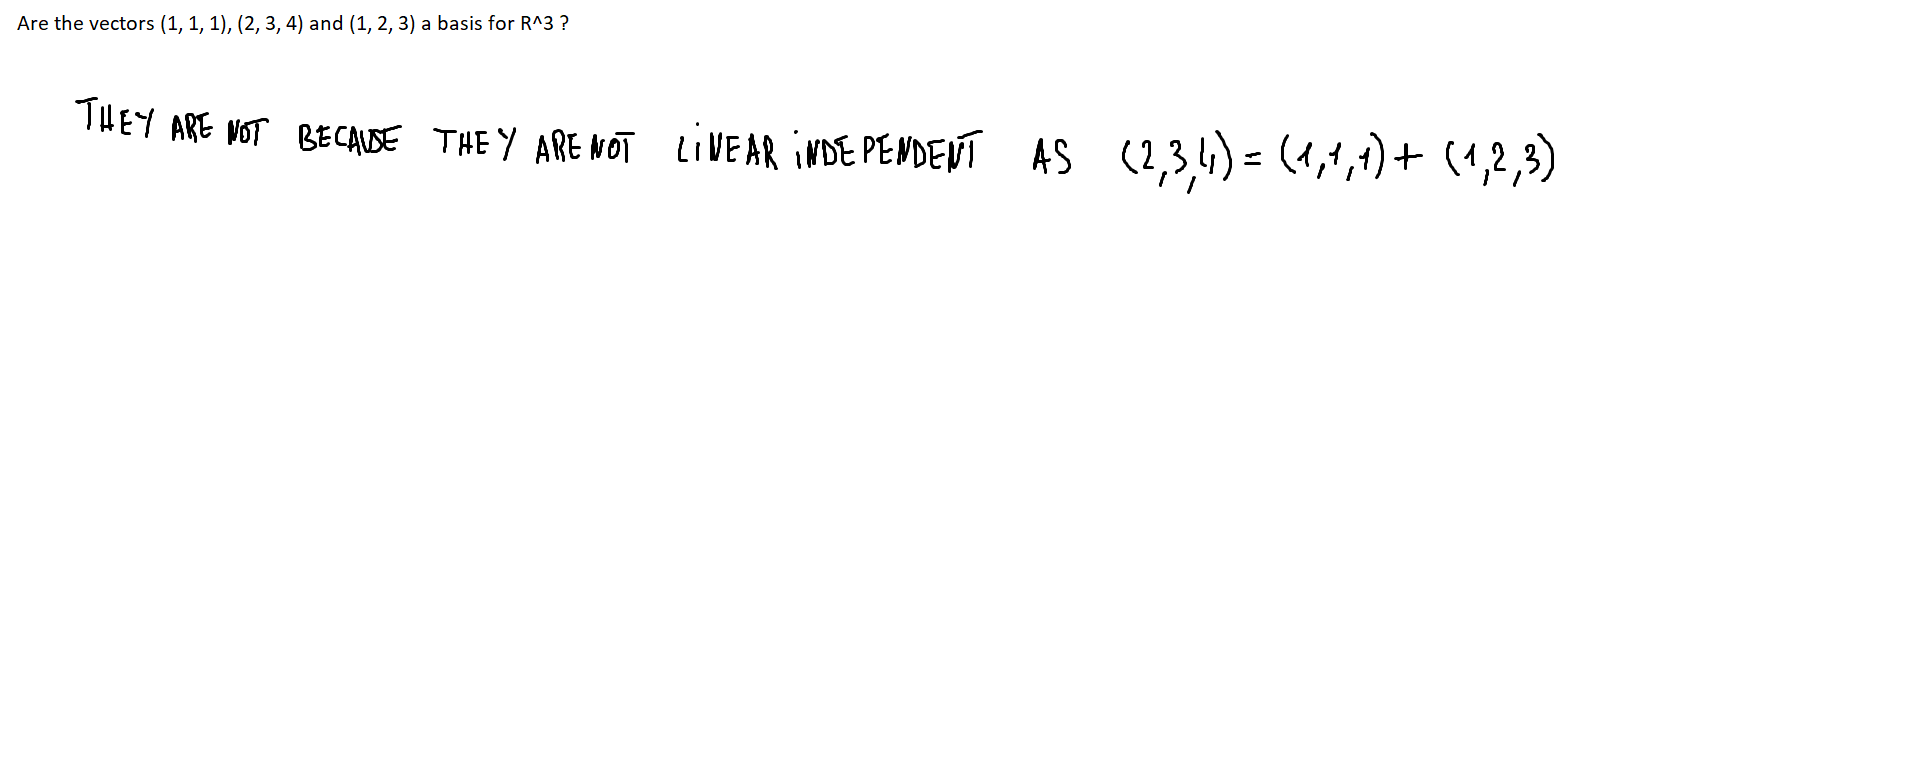 Are the vectors (1, 1, 1), (2, 3, 4) and (1, 2, 3) a basis for R^3 ?
THEY ARE NOT BECAUSE THEY ARE NOT LiNEAR iNDEPENDENT AS (2,3,4) = (1,1,1) + (1,2,3)